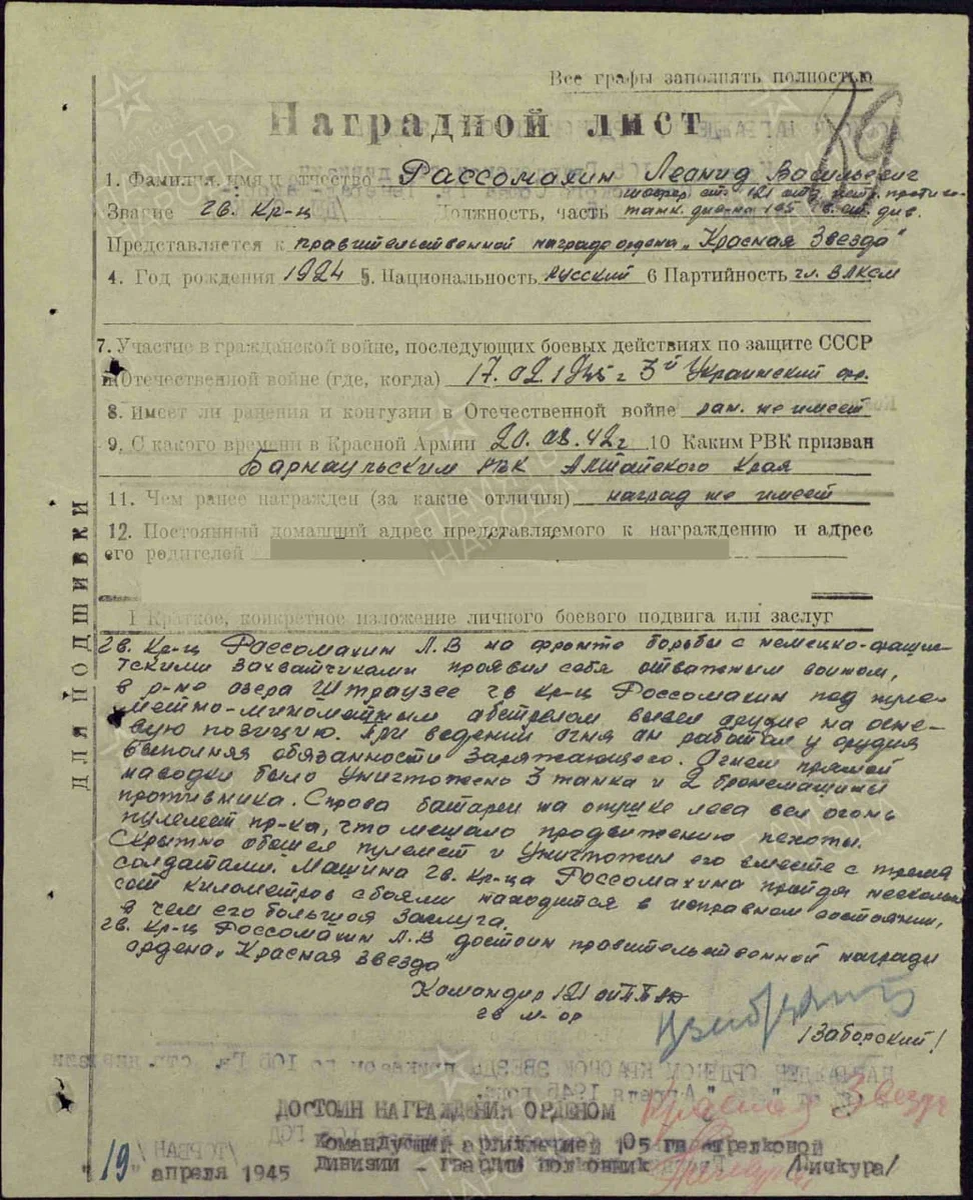 Все графы заполнять полностью
Наградной лист
89
1. Фамилия, имя и отчество Рассомахин Леонид Васильевич
шофер отд. истр. противо-
Звание гв. кр-ц Должность, часть танк. див-на 105 гв. ст. див.
Представляется к правительственной награде ордена „Красная Звезда"
4. Год рождения 1924 5. Национальность русский 6 Партийность чл. ВЛКСМ
7. Участие в гражданской войне, последующих боевых действиях по защите СССР
и Отечественной войне (где, когда) 17.02.1945 г 3й Украинский фр.
8. Имеет ли ранения и контузии в Отечественной войне ран. не имеет
9. С какого времени в Красной Армии 20.08.42 г. 10 Каким РВК призван
Барнаульским РВК Алтайского Края
11. Чем ранее награжден (за какие отличия) наград не имеет
12. Постоянный домашний адрес представляемого к награждению и адрес
его родителей
ДЛЯ ПОДШИВКИ
I Краткое, конкретное изложение личного боевого подвига или заслуг
гв. кр-ц Рассомахин Л.В на фронте борьбы с немецко-фаши-
тскими захватчиками проявил себя отважным воином,
в р-не озера Штраузее гв кр-ц Россомахин под пуле-
метно-минометным абстрелом вывел орудие на огне-
вую позицию. При ведении огня он работал у орудия
выполняя обязанности заряжающего. Огнем прямой
наводки было уничтожено 3 танка и 2 бронемашины
противника. Справа батареи на опушке леса вел огонь
пулемет пр-ка, что мешало продвижению пехоты.
Скрытно обошел пулемет и уничтожил его вместе с тремя
солдатами. Машина гв. кр-ца Россомахина пройдя несколько
сот километров с боями находится в исправном состоянии,
в чем его большая заслуга.
гв. кр-ц Россомахин Л.В достоин правительственной награды
ордена „Красная Звезда"
Командир 121
гв м-ор
/Заборский/
НАГРАЖДЕН ОРДЕНОМ КРАСНОЙ ЗВЕЗДЫ приказом по 105 Гв. стр. дивизии
Апреля 1945 года
ДОСТОИН НАГРАЖДЕНИЯ ОРДЕНОМ Красная Звезда
Командующий артиллерией 105 гв стрелковой
дивизии - гвардии полковник /Пичкура/
"19" апреля 1945
ПАМЯТЬ НАРОДА